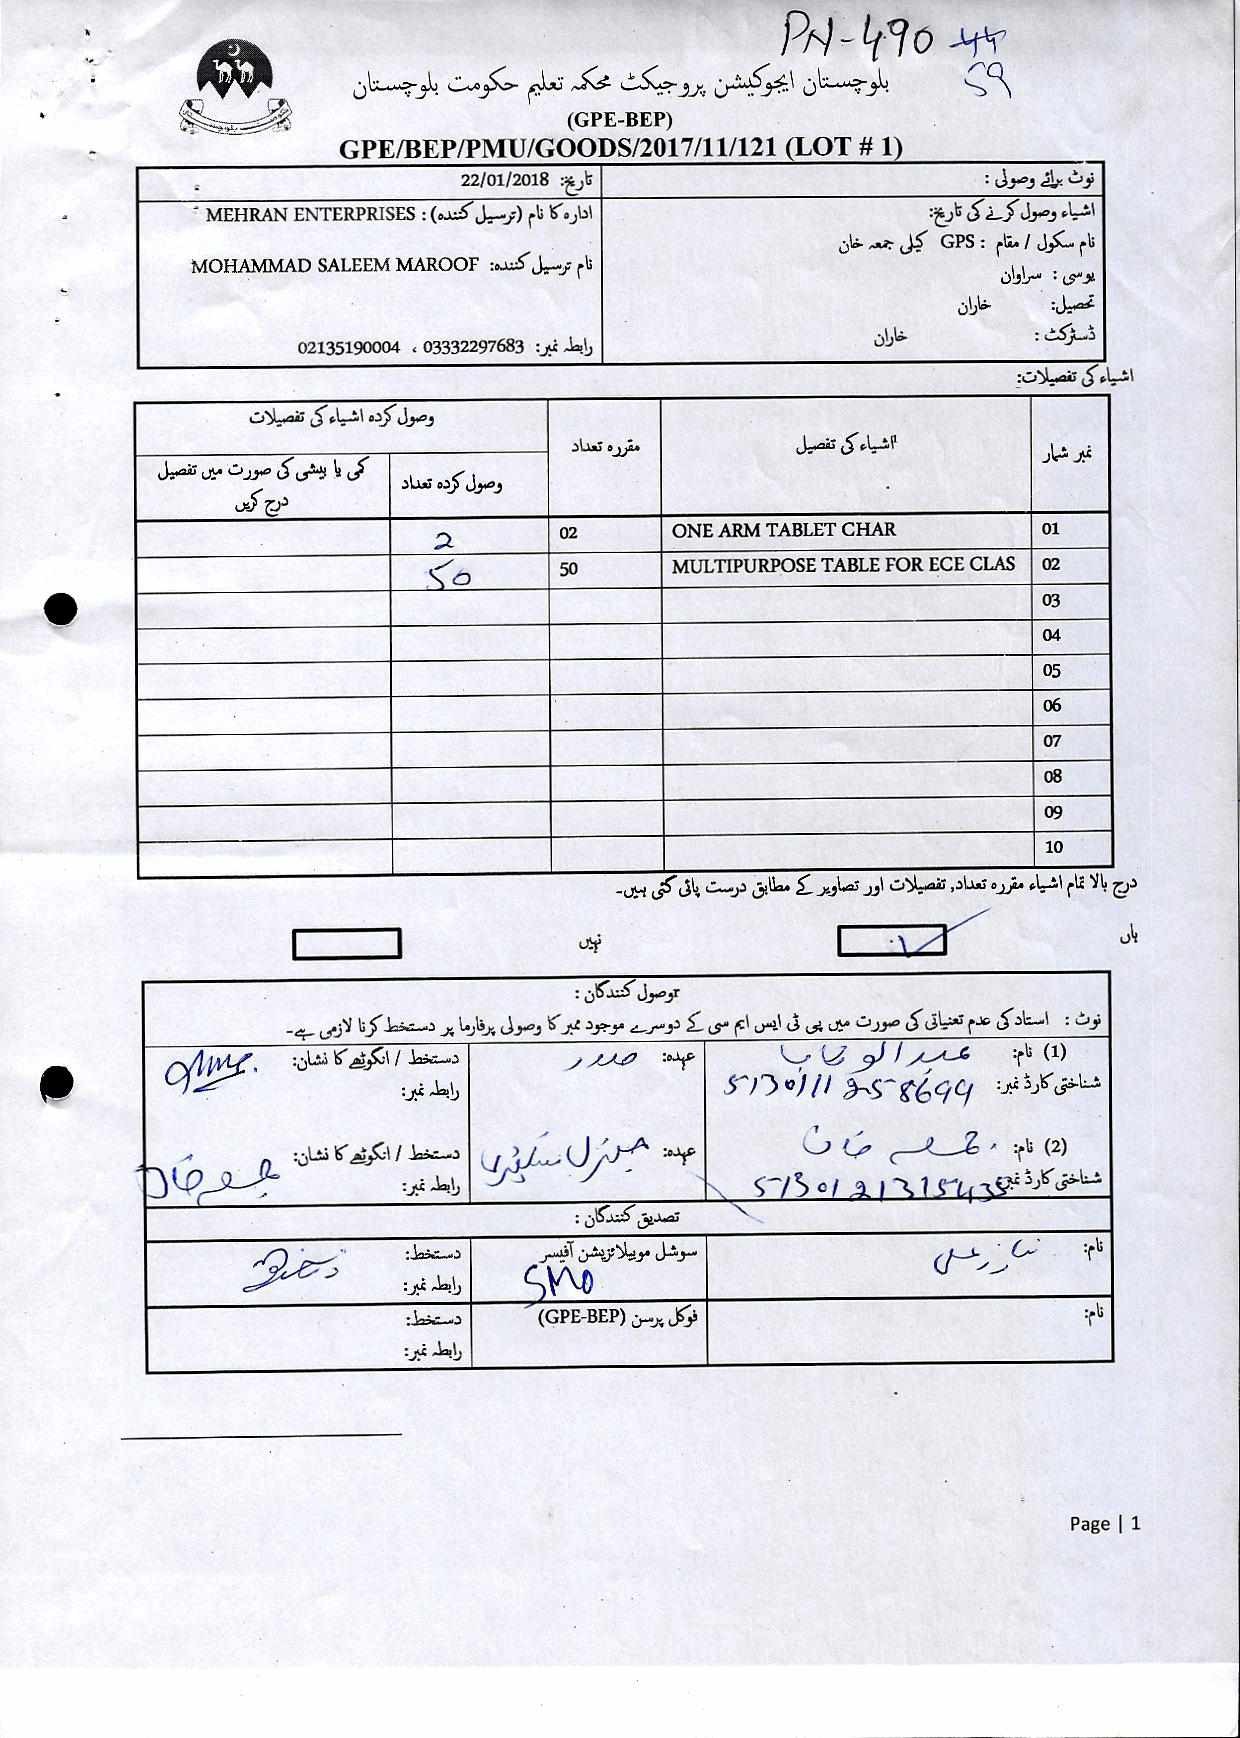 PN-490 44
59
بلوچستان ایجوکیشن پروجیکٹ محکمہ تعلیم حکومت بلوچستان
(GPE-BEP)
GPE/BEP/PMU/GOODS/2017/11/121 (LOT # 1)
نوٹ برائے وصولی :
تاریخ: 22/01/2018
اشیاء وصول کرنے کی تاریخ:
ادارہ کا نام (ترسیل کنندہ) : MEHRAN ENTERPRISES
نام سکول / مقام : GPS کیلی جمعہ خان
نام ترسیل کنندہ: MOHAMMAD SALEEM MAROOF
یو سی : سراوان
تحصیل: خاران
ڈسٹرکٹ : خاران
رابطہ نمبر: 03332297683 ، 02135190004
اشیاء کی تفصیلات:
نمبر شمار اشیاء کی تفصیل مقررہ تعداد وصول کردہ اشیاء کی تفصیلات
وصول کردہ تعداد کمی یا بیشی کی صورت میں تفصیل درج کریں
01 ONE ARM TABLET CHAR 02 2
02 MULTIPURPOSE TABLE FOR ECE CLAS 50 50
03
04
05
06
07
08
09
10
درج بالا تمام اشیاء مقررہ تعداد, تفصیلات اور تصاویر کے مطابق درست پائی گئی ہیں۔
ہاں نہیں
وصول کنندگان :
نوٹ : استاد کی عدم تعنیاتی کی صورت میں پی ٹی ایس ایم سی کے دوسرے موجود ممبر کا وصولی پرفارما پر دستخط کرنا لازمی ہے۔
(1) نام: عبدالوہاب عہدہ: صدر دستخط / انگوٹھے کا نشان:
شناختی کارڈ نمبر: 5130111258699 رابطہ نمبر:
(2) نام: جمعہ خان عہدہ: جنرل سیکٹری دستخط / انگوٹھے کا نشان: جمعہ خان
شناختی کارڈ نمبر: 5130121315435 رابطہ نمبر:
تصدیق کنندگان :
نام: نیاز علی سوشل موبیلائزیشن آفیسر دستخط:
SMO رابطہ نمبر:
نام: فوکل پرسن (GPE-BEP) دستخط:
رابطہ نمبر:
Page | 1